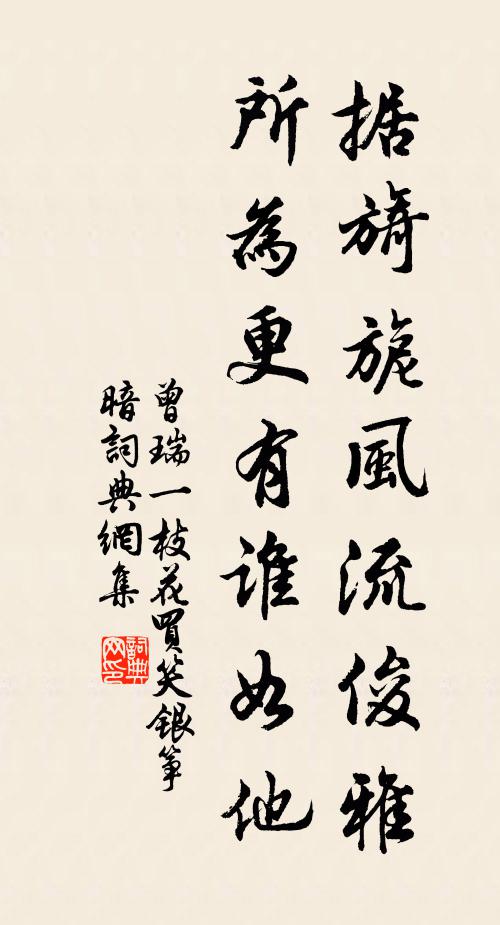 据旖旎風流俊雅
所為更有誰如他
曾瑞一枝花買笑銀箏
暗詞典網集
詞典網印